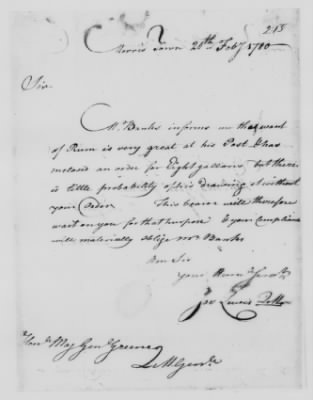 213
Morris Town 28th Feby 1780
Sir
Mr Banks informs me that want
of Rum is very great at his Post & has
inclosed an order for Eight gallons, but there
is little probability of his drawing it without
your Order. This bearer will therefore
wait on you for that purpose & your Compliance
will materially oblige Mr Banks
Sir
your Hum Servt
Lewis
Honble Maj Genl Greene
QMGenl